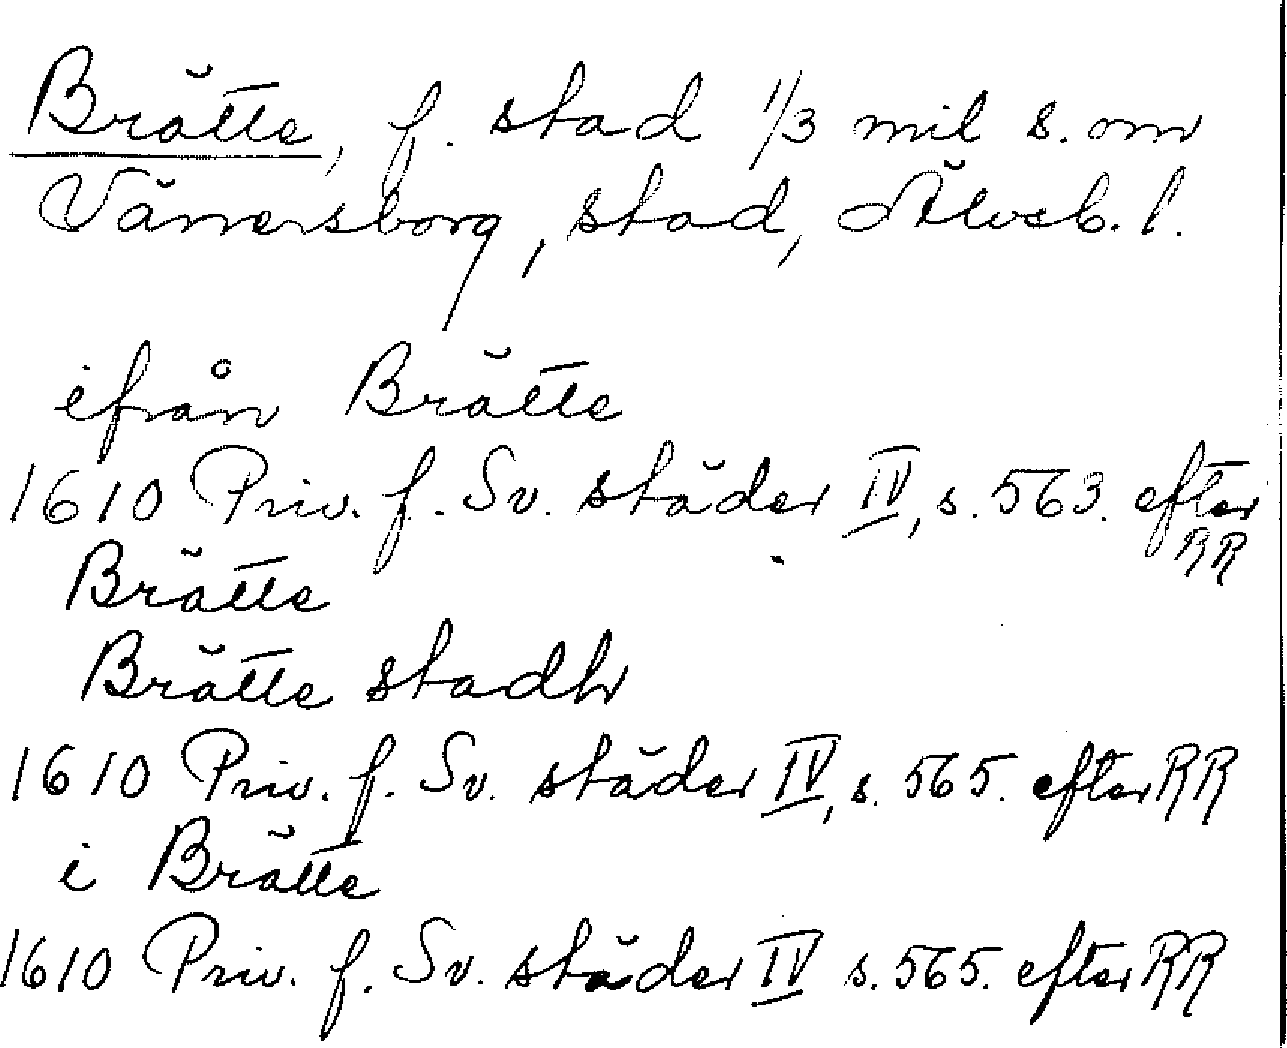 Brätte, f. stad 1/3 mil s. om
Vänersborg, stad, Älvsb. l.
ifrån Brätte
1610 Priv. f. Sv. städer IV, s. 563. efter
RR
Brätte
Brätte stadh
1610 Priv. f. Sv. städer IV, s. 565. efter RR
i Brätte
1610 Priv. f. Sv. städer IV s. 565. efter RR